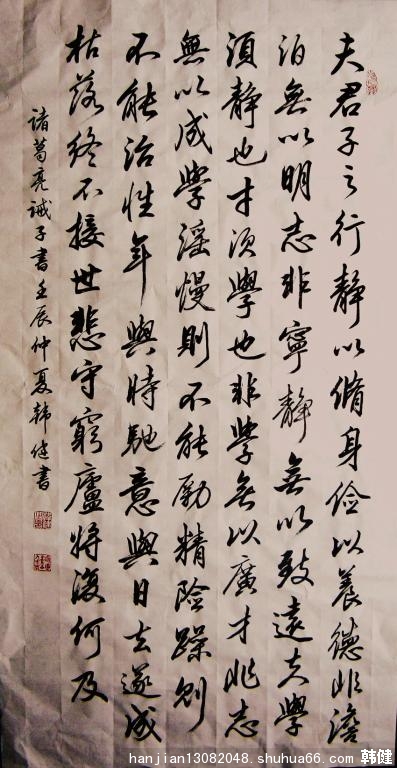 夫君子之行靜以脩身儉以養德非澹
泊無以明志非寧靜無以致遠夫學
須靜也才須學也非學無以廣才非志
無以成學滛慢則不能勵精險躁則
不能治性年與時馳意與日去遂成
枯落終不接世悲守窮廬將復何及
諸葛亮誡子書壬辰仲夏韓健書
hanjian13082048.shuhua66.com 韩健